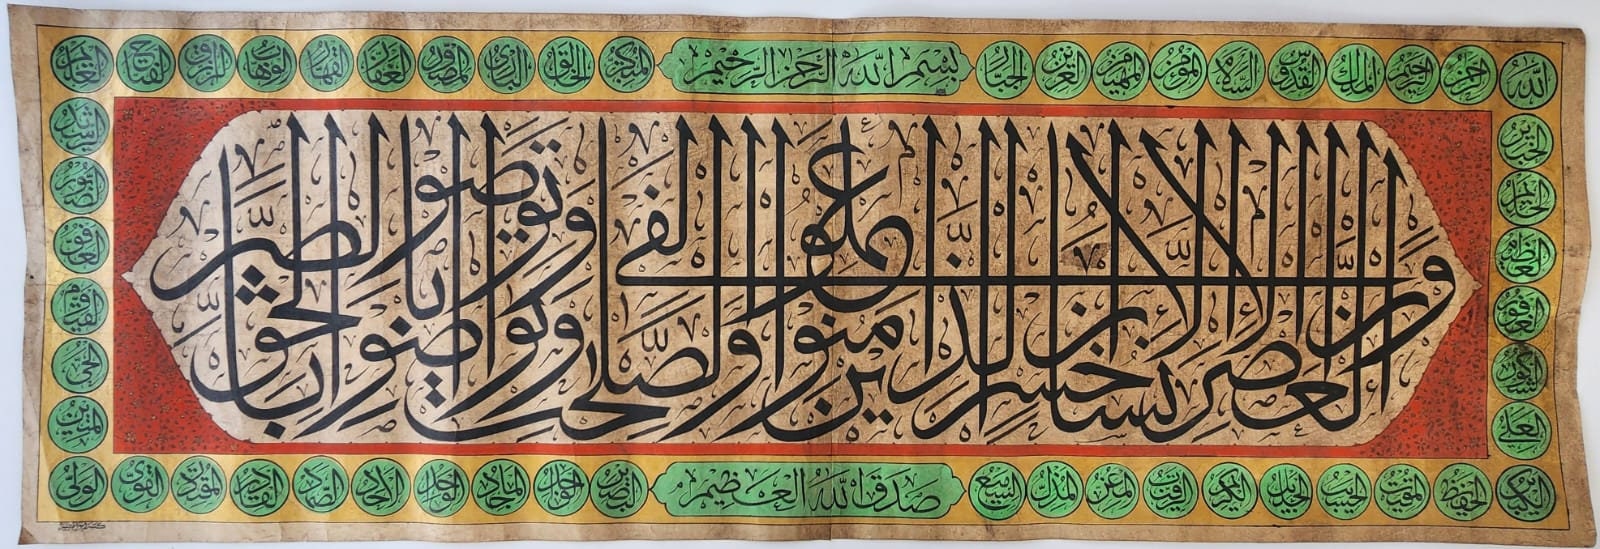 الله الرحمن الرحيم الملك القدوس السلام المؤمن المهيمن العزيز الجبار
بسم الله الرحمن الرحيم
المتكبر الخالق البارئ المصور الغفار القهار الوهاب الرزاق الفتاح العليم
والعصر إن الإنسان لفي خسر إلا الذين آمنوا وعملوا الصالحات وتواصوا بالحق وتواصوا بالصبر
الخبير
الحليم
العظيم
الغفور
الشكور
العلي
الرشيد
القيوم
الحي
المتين
الكبير الحفيظ المقيت الحسيب الجليل الكريم الرقيب المعز المذل السميع
صدق الله العظيم
البصير الماجد الواحد الأحد الصمد القادر المقتدر القوي الولي